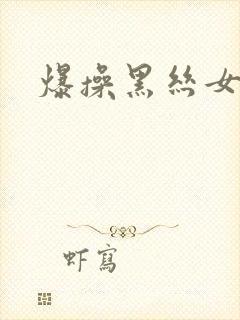 爆操黑絲女
虾寫